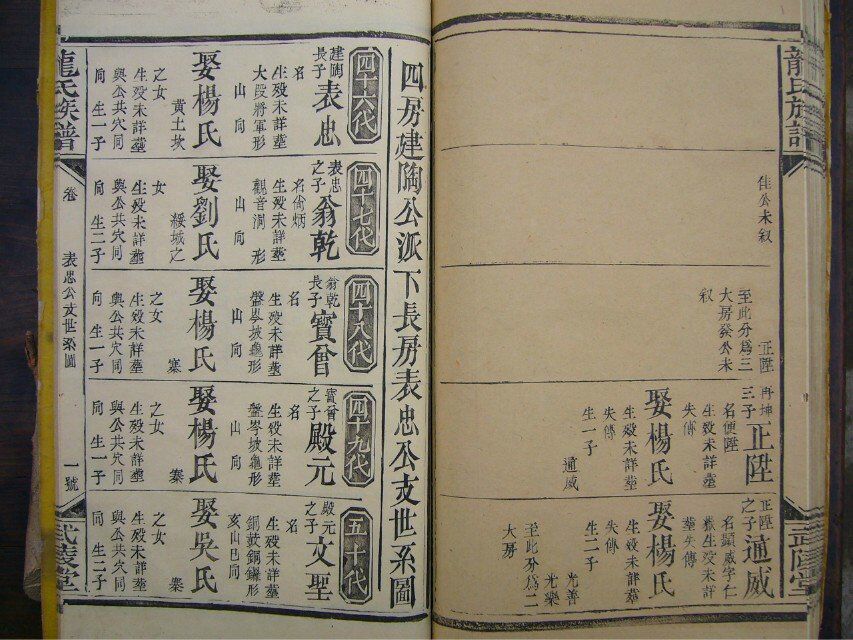 龍氏族譜
佳公未叙
正陞
至此分爲三
大房發公未
叙
再坤
三子
正陞
名便陞
生殁未詳塟
失傳
娶楊氏
生殁未詳塟
失傳
生一子
通威
正陞
之子
通威
名顯威字仁
生殁未詳
塟失傳
娶楊氏
生殁未詳塟
失傳
生二子
光善
光樂
至此分爲二
大房
武陵堂
四房建陶公派下長房表忠公支世系圖
四十六代
建陶
長子
表忠
名
生殁未詳塟
大段將軍形
山向
娶楊氏
黃土坎
之女
生殁未詳塟
與公共穴同
向 生一子
四十七代
表忠
之子
翁乾
名尙炳
生殁未詳塟
觀音洞形
山向
娶劉氏
綏城之
女
生殁未詳塟
與公共穴同
向 生二子
四十八代
翁乾
長子
寶曾
名
生殁未詳塟
盤岑坡龜形
山向
娶楊氏
寨
之女
生殁未詳塟
與公共穴同
向 生一子
四十九代
寶曾
之子
殿元
名
生殁未詳塟
盤岑坡龜形
山向
娶楊氏
寨
之女
生殁未詳塟
與公共穴同
向 生一子
五十代
殿元
之子
文聖
名
生殁未詳塟
銅鼓銅鑼形
亥山巳向
娶吳氏
寨
之女
生殁未詳塟
與公共穴同
向 生二子
龍氏族譜
卷
表忠公支世系圖
一號
武陵堂